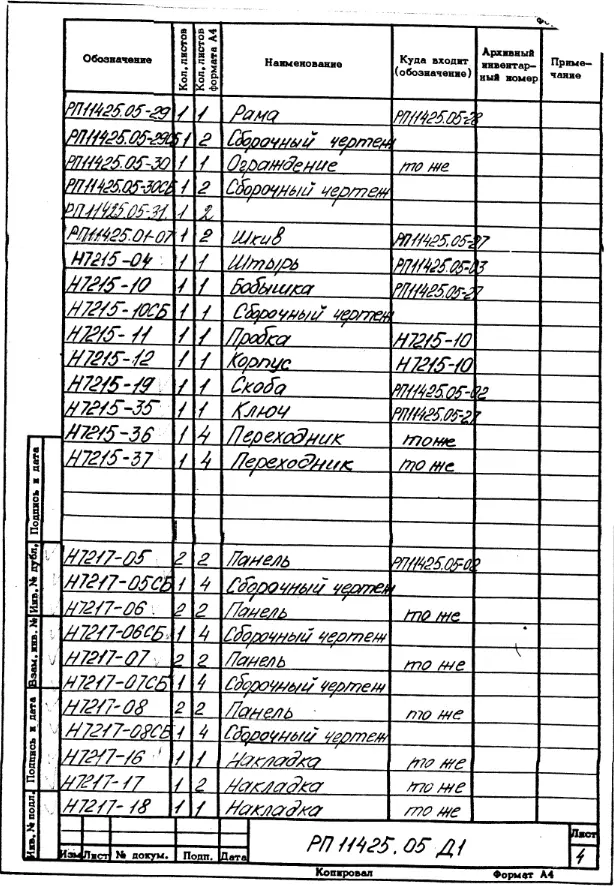 Обозначение Кол. листов Кол. листов формата А4 Наименование Куда входит (обозначение) Архивный инвентарный номер Примечание
РП11425.05-29 1 1 Рама РП11425.05-28
РП11425.05-29СБ 1 2 Сборочный чертеж
РП11425.05-30 1 1 Ограждение то же
РП11425.05-30СБ 1 2 Сборочный чертеж
РП11425.05-31 1 2
РП11425.01-07 1 2 Шкив РП11425.05-27
Н7215-04 1 1 Штырь РП11425.05-03
Н7215-10 1 1 Бобышка РП11425.05-27
Н7215-10СБ 1 1 Сборочный чертеж
Н7215-11 1 1 Пробка Н7215-10
Н7215-12 1 1 Корпус Н7215-10
Н7215-19 1 1 Скоба РП11425.05-02
Н7215-35 1 1 Ключ РП11425.05-27
Н7215-36 1 4 Переходник то же
Н7215-37 1 4 Переходник то же
Н7217-05 2 2 Панель РП11425.05-02
Н7217-05СБ 1 4 Сборочный чертеж
Н7217-06 2 2 Панель то же
Н7217-06СБ 1 4 Сборочный чертеж
Н7217-07 2 2 Панель то же
Н7217-07СБ 1 4 Сборочный чертеж
Н7217-08 2 2 Панель то же
Н7217-08СБ 1 4 Сборочный чертеж
Н7217-16 1 1 Накладка то же
Н7217-17 1 2 Накладка то же
Н7217-18 1 1 Накладка то же
Подпись и дата
Инв. № дубл.
Взам. инв. №
Подпись и дата
Инв. № подл.
РП 11425.05 Д1
Лист
4
Изм Лист № докум. Подп. Дата
Копировал Формат А4